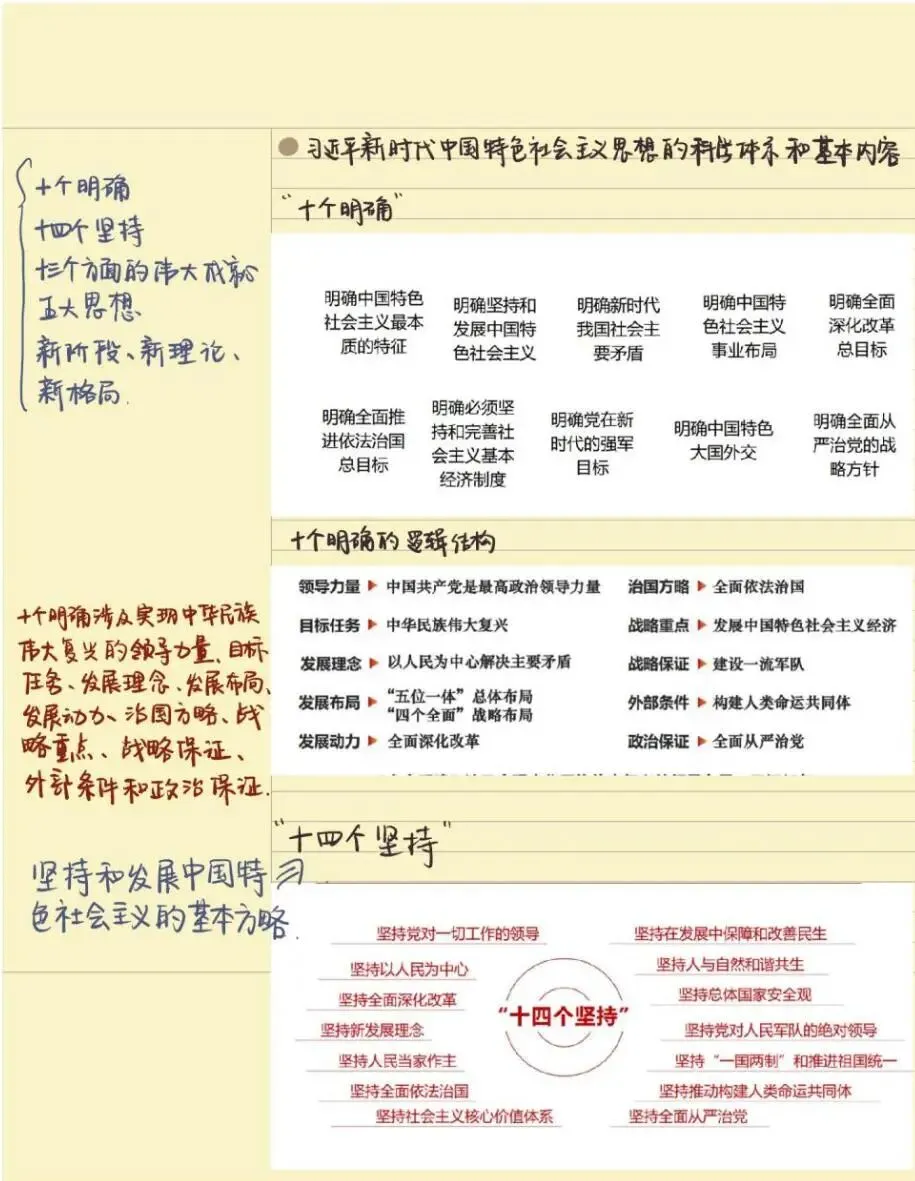 习近平新时代中国特色社会主义思想的科学体系和基本内容
十个明确
十四个坚持
十三个方面的伟大成就
五大思想
新阶段、新理论、
新格局.
“十个明确”
明确中国特色
社会主义最本
质的特征
明确坚持和
发展中国特
色社会主义
明确新时代
我国社会主
要矛盾
明确中国特
色社会主义
事业布局
明确全面
深化改革
总目标
明确全面推
进依法治国
总目标
明确必须坚
持和完善社
会主义基本
经济制度
明确党在新
时代的强军
目标
明确中国特色
大国外交
明确全面从
严治党的战
略方针
十个明确的逻辑结构
领导力量 ▶ 中国共产党是最高政治领导力量
目标任务 ▶ 中华民族伟大复兴
发展理念 ▶ 以人民为中心解决主要矛盾
发展布局 ▶ “五位一体”总体布局
“四个全面”战略布局
发展动力 ▶ 全面深化改革
治国方略 ▶ 全面依法治国
战略重点 ▶ 发展中国特色社会主义经济
战略保证 ▶ 建设一流军队
外部条件 ▶ 构建人类命运共同体
政治保证 ▶ 全面从严治党
十个明确涉及实现中华民族
伟大复兴的领导力量、目标
任务、发展理念、发展布局、
发展动力、治国方略、战
略重点、战略保证、
外部条件和政治保证.
“十四个坚持”
坚持和发展中国特
色社会主义的基本方略.
坚持党对一切工作的领导
坚持以人民为中心
坚持全面深化改革
坚持新发展理念
坚持人民当家作主
坚持全面依法治国
坚持社会主义核心价值体系
“十四个坚持”
坚持在发展中保障和改善民生
坚持人与自然和谐共生
坚持总体国家安全观
坚持党对人民军队的绝对领导
坚持“一国两制”和推进祖国统一
坚持推动构建人类命运共同体
坚持全面从严治党